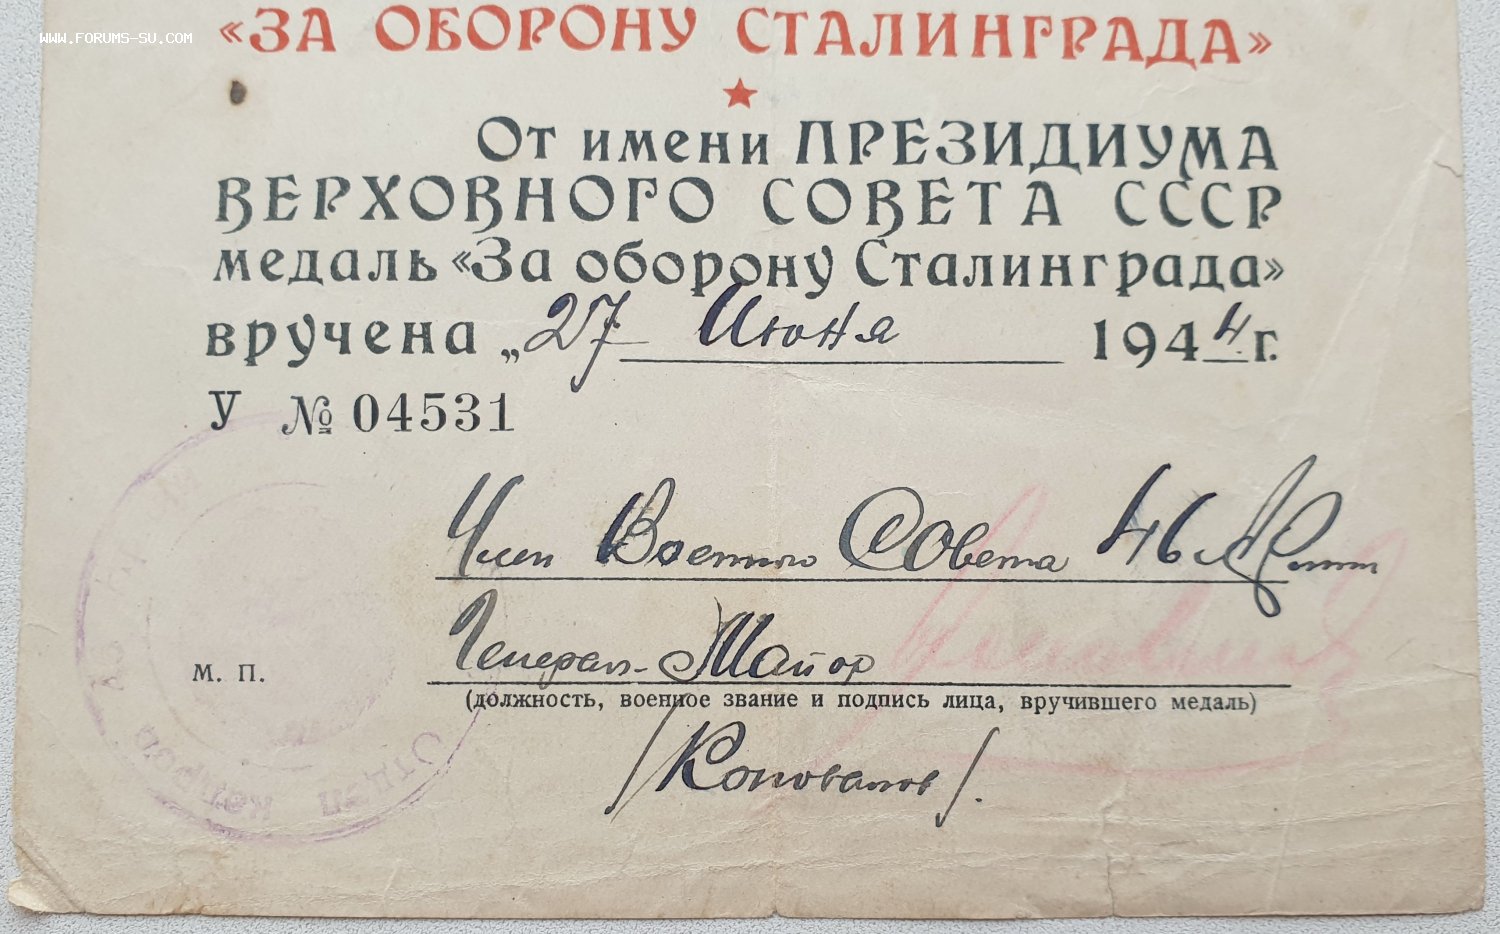 WWW.FORUMS-SU.COM
«ЗА ОБОРОНУ СТАЛИНГРАДА»
От имени ПРЕЗИДИУМА
ВЕРХОВНОГО СОВЕТА СССР
медаль «За оборону Сталинграда»
вручена „27 Июня 1944 г.
У № 04531
Член Военного Совета 46 Армии
Генерал-Майор
М. П.
(должность, военное звание и подпись лица, вручившего медаль)
/Коновалов/.
Отдел кадров